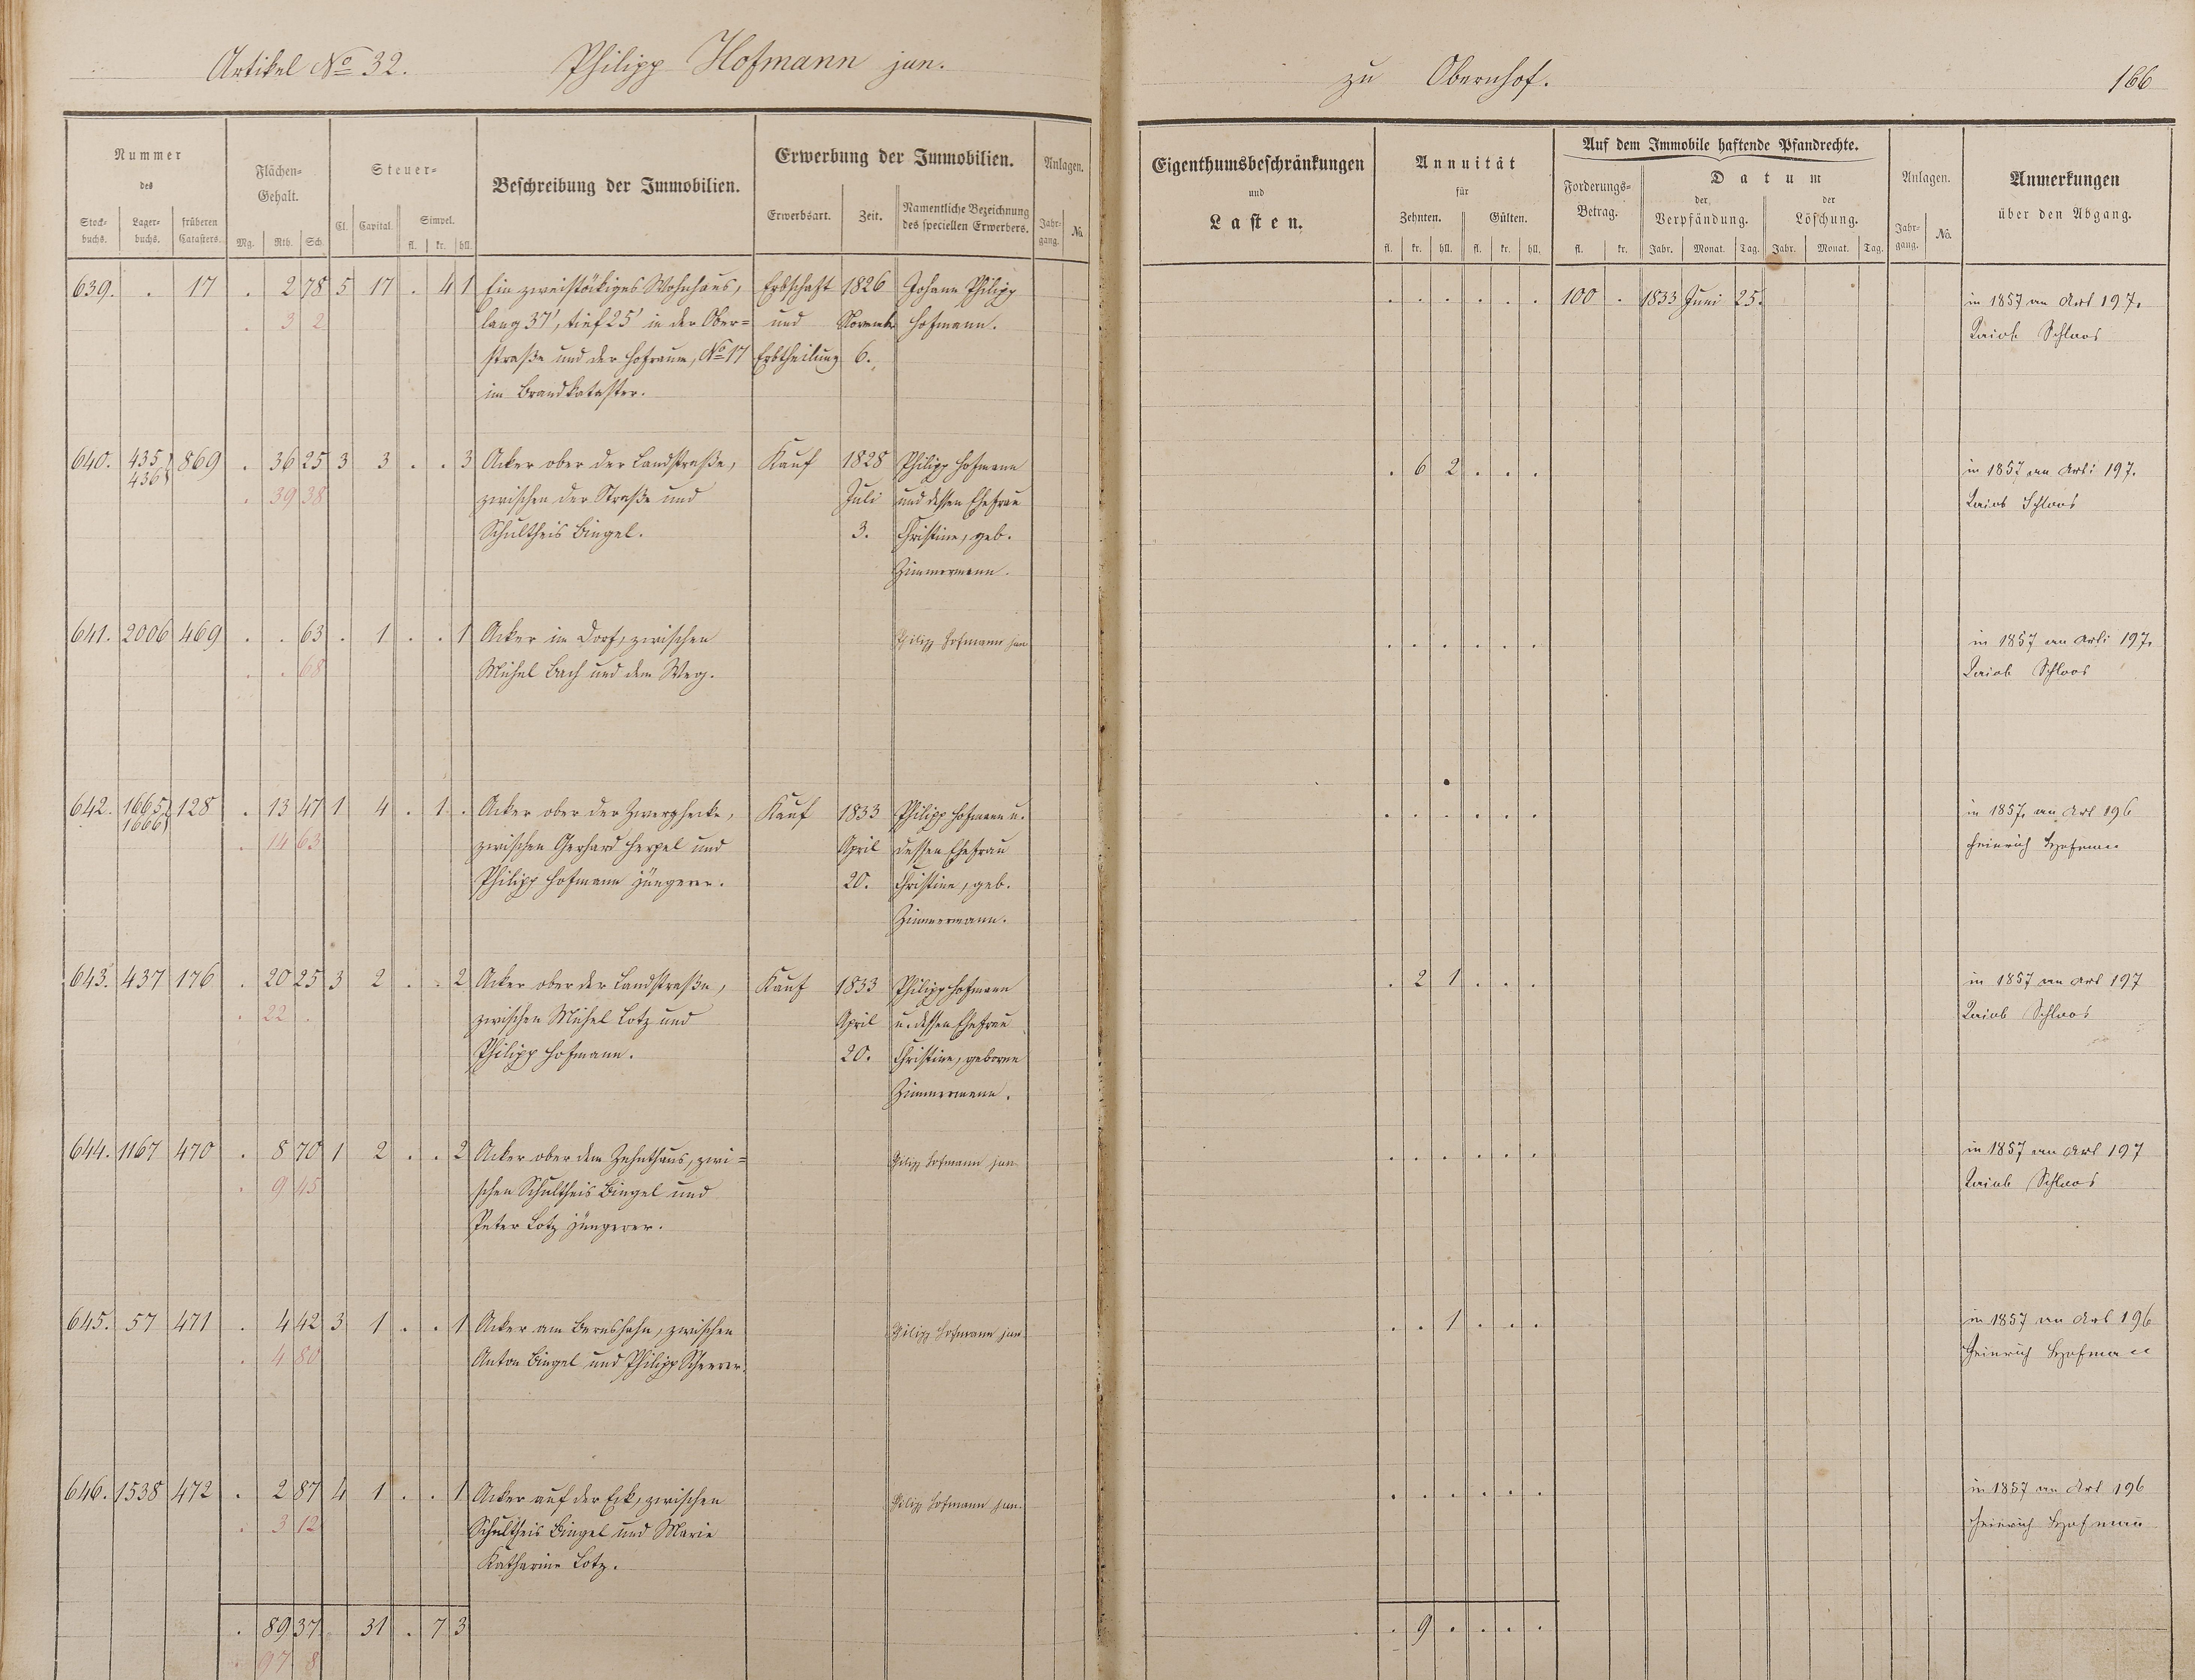 Artikel No 32. Philipp Hofmann jun. zu Obernhof. 166
Nummer
des
Stock-
buchs.
Lager-
buchs.
früheren
Catasters.
Flächen-
Gehalt.
Mg. Rth. Sch.
Steuer-
Cl. Capital. Simpel.
fl. kr. hll.
Beschreibung der Immobilien.
Erwerbung der Immobilien.
Erwerbsart. Zeit. Namentliche Bezeichnung
des speciellen Erwerbers.
Anlagen.
Jahr-
gang. No.
Eigenthumsbeschränkungen
und
Lasten.
Annuität
für
Zehnten. Gülten.
fl. kr. hll. fl. kr. hll.
Auf dem Immobile haftende Pfandrechte.
Forderungs-
Betrag.
fl. kr.
Datum
der
Verpfändung.
der
Löschung.
Jahr. Monat. Tag. Jahr. Monat. Tag.
Anlagen.
Jahr-
gang. No.
Anmerkungen
über den Abgang.
639. . 17 . 2 78 5 17 . 4 1 Ein zweistöckiges Wohnhaus, Erbschaft 1826 Johann Philipp . . . . . . 100 . 1833 Juni 25. in 1857 an Art 197.
. 3 2 lang 37', tief 25' in der Ober= und November Hofmann. Schloos
straße und der Hofraum, No 17 Erbtheilung 6.
im Brandkataster.
640. 435 436 869 . 36 25 3 3 . . 3 Acker ober der Landstraße, Kauf 1828 Philipp Hofmann . 6 2 . . . in 1857 an Arti 197.
. 39 38 zwischen der Straße und Juli und dessen Ehefrau Schloos
Schultheis Bingel. 3. Christine, geb.
Zimmermann.
641. 2006 469 . . 63 . 1 . . 1 Acker im Dorf, zwischen Philipp Hofmann jun . . . . . . in 1857 an Arti 197.
. . 68 Michel Bach und dem Weg. Schloos
642. 1665 1666 128 . 13 47 1 4 . 1 . Acker ober der Zwerghecke, Kauf 1833 Philipp Hofmann u. . . . . . . in 1857. an Art 196
. 14 63 zwischen Gerhard Herpel und April dessen Ehefrau Heinrich Hofmann
Philipp Hofmann jüngerer. 20. Christine, geb.
Zimmermann.
643. 437 176 . 20 25 3 2 . . 2 Acker ober der Landstraße, Kauf 1833 Philipp Hofmann . 2 1 . . . in 1857 an Art 197
. 22 . zwischen Michel Lotz und April u. dessen Ehefrau Schloos
Philipp Hofmann. 20. Christine, geborne
Zimmermann.
644. 1167 470 . 8 70 1 2 . . 2 Acker ober dem Zehnthaus, zwi= Philipp Hofmann jun . . . . . . in 1857 an Art 197
. 9 45 schen Schultheis Bingel und Schloos
Peter Lotz jüngerer.
645. 57 471 . 4 42 3 1 . . 1 Acker am Bernshahn, zwischen Philipp Hofmann jun . . 1 . . . in 1857 an Art 196
. 4 80 Anton Bingel und Philipp Scherer. Heinrich Hofmann
646. 1538 472 . 2 87 4 1 . . 1 Acker auf der Eck, zwischen Philipp Hofmann jun. . . . . . . in 1857 an Art 196
. 3 12 Schultheis Bingel und Marie Heinrich Hofmann
Katharine Lotz.
. 89 37 31 . 7 3 . 9 . . . .
. 97 8